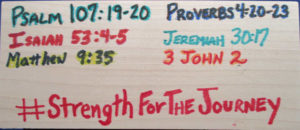 Psalm 107:19-20 Proverbs 4:20-23
Isaiah 53:4-5 Jeremiah 30:17
Matthew 9:35 3 John 2
#Strength For The Journey